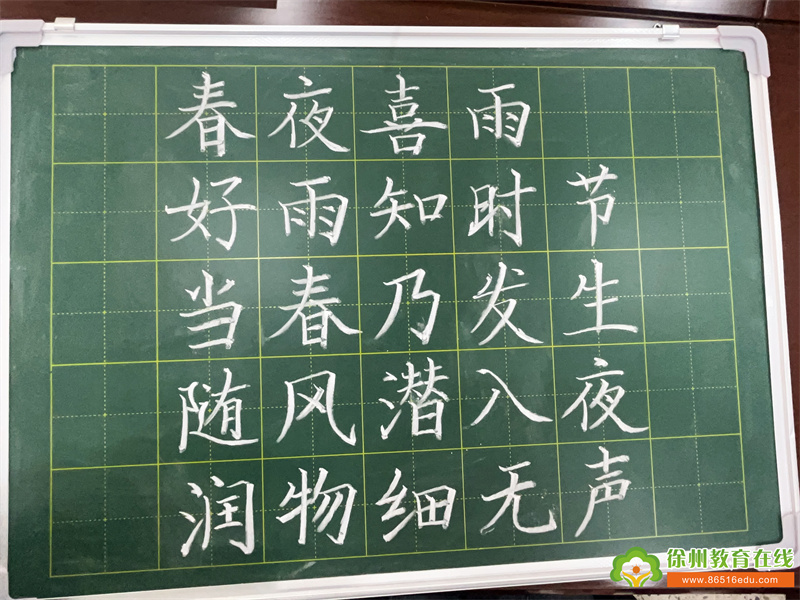 春夜喜雨
好雨知时节
当春乃发生
随风潜入夜
润物细无声
徐州教育在线
www.86516edu.com